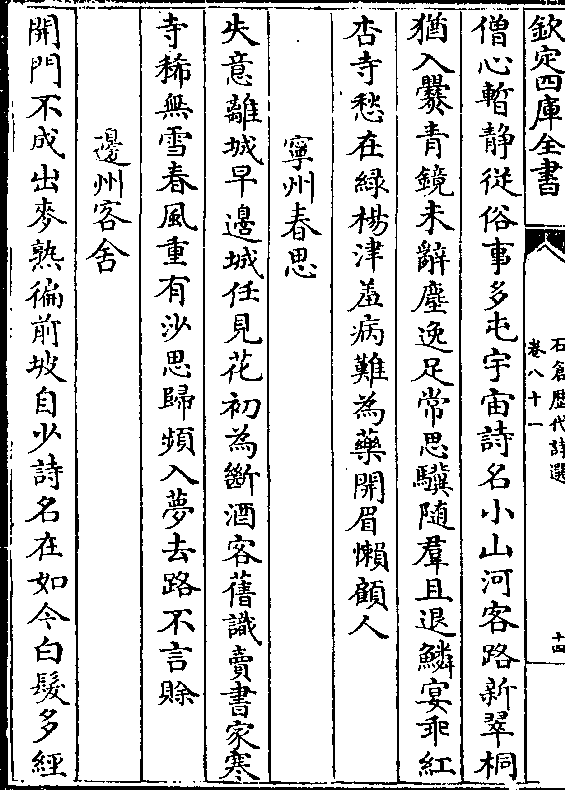 欽定四庫全書
石倉歷代詩選
卷八十一
十四
僧心暫静從俗事多屯宇宙詩名小山河客路新翠桐
猶入爨青鏡未辭塵逸足常思驥隨羣且退鱗宴乖紅
杏寺愁在緑楊津羞病難為藥開眉懶顧人
寧州春思
失意離城早邊城任見花初為斷酒客舊識賣書家寒
寺稀無雪春風重有沙思歸頻入夢去路不言賒
邊州客舍
開門不成出麥熟徧前坡自少詩名在如今白髮多經